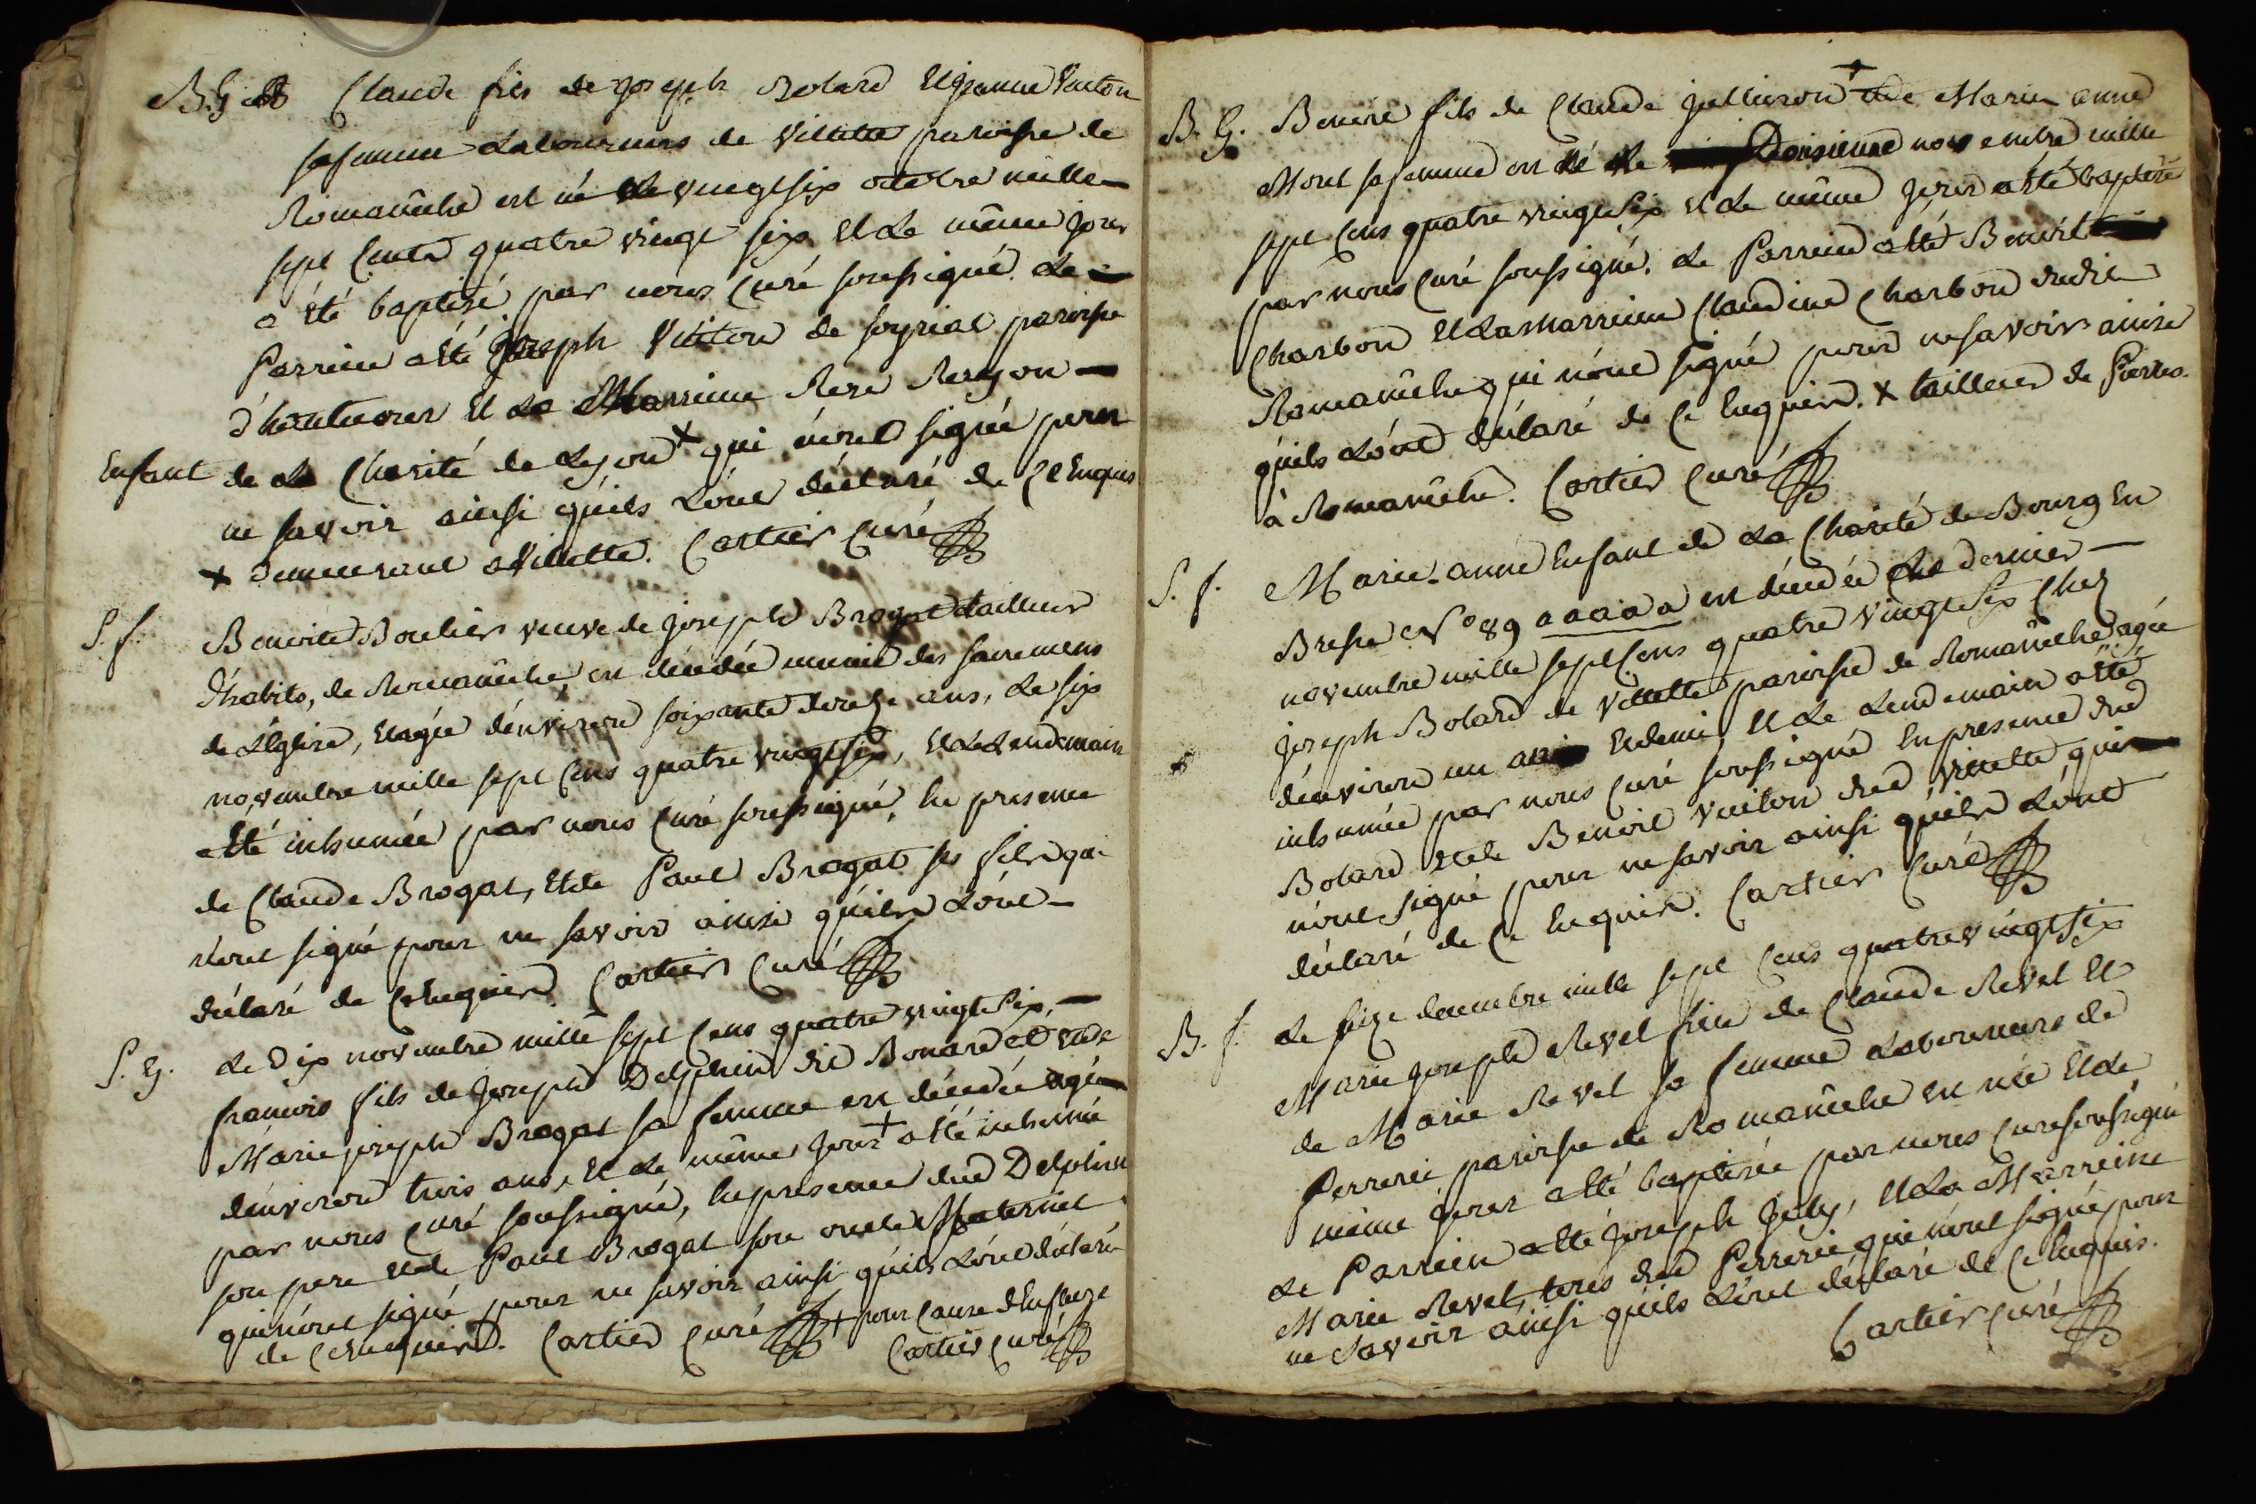 B. G. Claude fils de Joseph Bolard Et Jeanne Vuiton
sa femme Laboureurs de Villette paroisse de
Romanêche est né le vingt six octobre mille
sept Cents quatre vingt six Et Le même jour
a été baptisé par nous Curé soussigné. Le
Parrein a Eté Joseph Vuiton de soyriat paroisse
d'hautecour Et La Marreine Rose
Enfant de La Charité de Lyon x qui n'ont signé pour
ne savoir ainsi qu'ils L'ont déclaré de Ce Enquis
x demeurant a Villette. Cartier Curé
S. f. Benoite Boulier veuve de Joseph Brogat tailleur
d'habits, de Romanêche, est décedée munie des sacremens
de L'Eglise, Et agée d'environ soixante douze ans, Le six
novembre mille sept Cens quatre vingt six, Et Le Lendemain
a Eté inhumée par nous Curé soussigné, En presence
de Claude Brogat, Et de Paul Brogat ses fils qui
n'ont signé pour ne savoir ainsi qu'ils L'ont
déclaré de Ce Enquis. Cartier Curé
S. G. Le Dix novembre mille sept Cens quatre vingt six,
francois fils de Joseph Delphin dit Bonard et de
Marie joseph Brogat sa femme est décedé agé
d'environ trois ans, Et Le même Jour + a Eté inhumé
par nous Curé soussigné, En presence dud Delphin
son pere Et de Paul Brogat son oncle Maternel
qui n'ont signé pour ne savoir ainsi qu'ils L'ont déclaré
de Ce Enquis. Cartier Curé + pour Cause d'
Cartier Curé
B. G. Benoit fils de Claude Jullieron + Et de Marie anne
Mont sa femme est né Le Douzieme novembre mille
sept Cens quatre vingt six Et Le même Jour a Eté baptisé
par nous Curé soussigné. Le Parrein a Eté Benoit
Charbon Et La Marreine Claudine Charbon dudit
Romanêche qui n'ont signé pour ne savoir ainsi
qu'ils L'ont déclaré de Ce Enquis. x tailleur de Pierres
à Romanêche. Cartier Curé
S. f. Marie-anne Enfant de La Charité de Bourg En
Bresse N° 89 a a a a a est décedée Le dernier
novembre mille sept Cens quatre vingt six Chez
Joseph Bolard de Villette paroisse de Romanêche agée
d'environ un an Et demi, Et Le Lendemain a Eté
inhumée par nous Curé soussigné En presence dud
Bolard Et de Benoit Vuiton dud Villette qui
n'ont signé pour ne savoir ainsi qu'ils L'ont
déclaré de Ce Enquis. Cartier Curé
B. f. Le seize decembre mille sept Cens quatre vingt six
Marie Joseph Revel fille de Claude Revel Et
de Marie Revel sa femme Laboureurs de
Perrerie paroisse de Romanêche Est née Et Le
même jour a Eté baptisée par nous Curé soussigné
Le Parrein a Eté Joseph Jely, Et La Marreine
Marie Revel, tous dud Perrerie qui n'ont signé pour
ne savoir ainsi qu'ils L'ont déclaré de Ce Enquis.
Cartier Curé